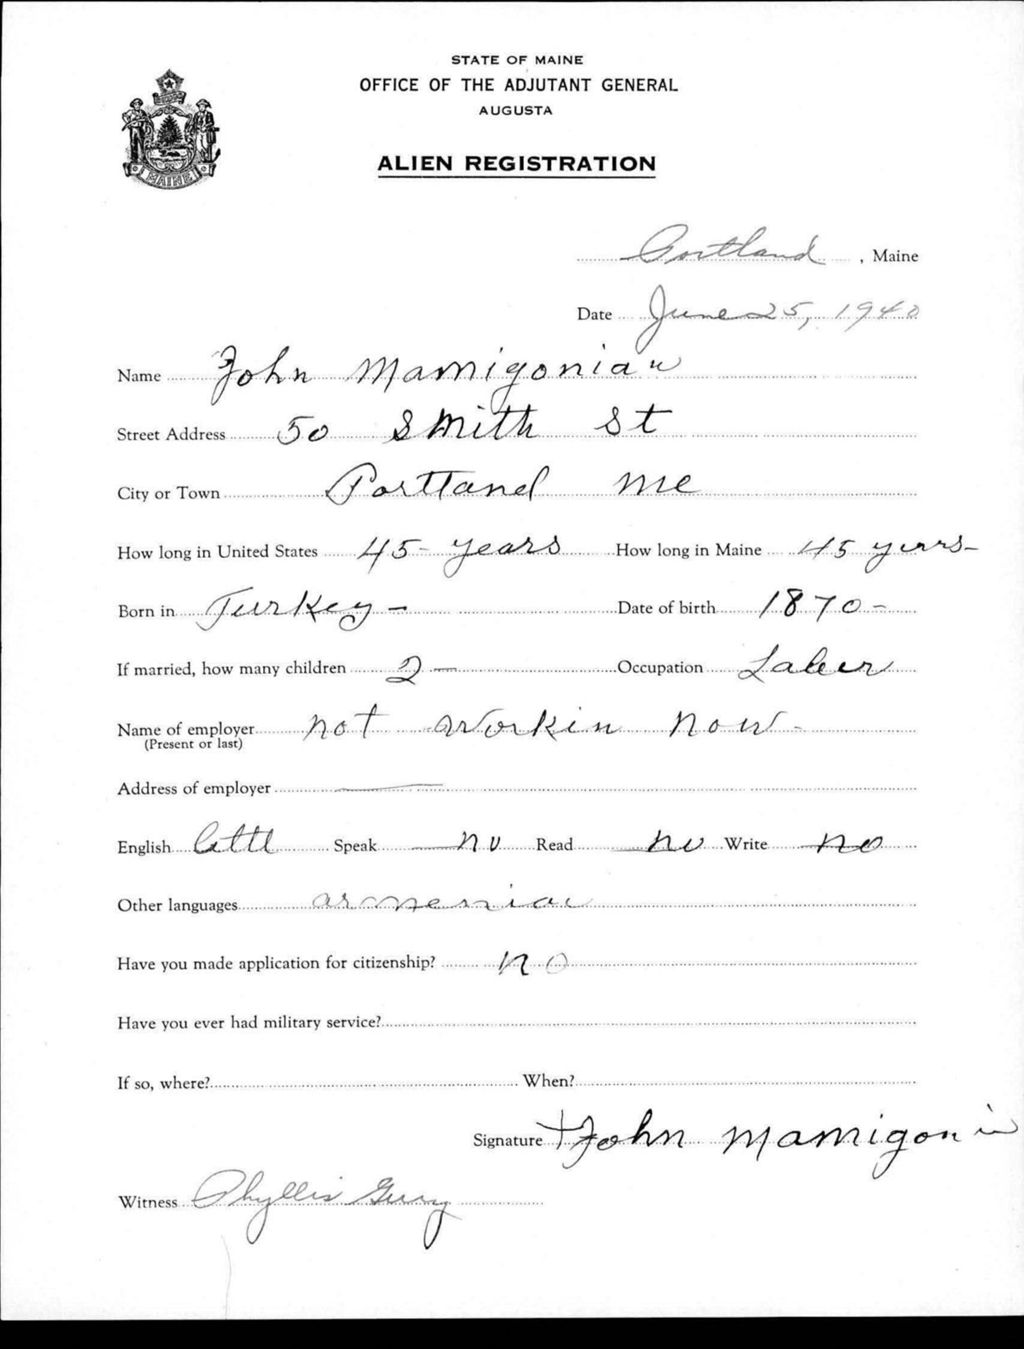 STATE OF MAINE
OFFICE OF THE ADJUTANT GENERAL
AUGUSTA
ALIEN REGISTRATION
MAINE
Portland, Maine
Date June 25, 1940
Name John Mamigonian
Street Address 50 Smith St
City or Town Portland Me
How long in United States 45- years How long in Maine 45 years-
Born in Turkey - Date of birth 1870-
If married, how many children 2 - Occupation Laber
Name of employer not workin now -
(Present or last)
Address of employer —
English littl Speak no Read no Write no
Other languages armenian
Have you made application for citizenship? no
Have you ever had military service?
If so, where? When?
Signature John Mamigonin
Witness Phyllis